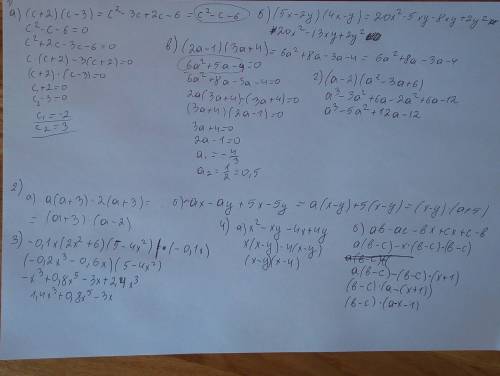 1)
а) (c+2)(c-3) = c²-3c+2c-6 = c²-c-6
c²-c-6=0
c²+2c-3c-6=0
c·(c+2)-3(c+2)=0
(c+2)·(c-3)=0
c+2=0
c-3=0
c₁=-2
c₂=3
б) (5x-2y)(4x-y) = 20x²-5xy-8xy+2y² =
20x²-13xy+2y²
в) (2a-1)(3a+4) = 6a²+8a-3a-4 = 6a²+8a-3a-4
6a²+5a-4=0
6a²+8a-3a-4=0
2a(3a+4)-(3a+4)=0
(3a+4)(2a-1)=0
3a+4=0
2a-1=0
a₁=-4/3
a₂=1/2=0,5
г) (a-2)(a²-3a+6)
a³-3a²+6a-2a²+6a-12
a³-5a²+12a-12
2)
а) a(a+3)-2(a+3)=
=(a+3)·(a-2)
б) ax-ay+5x-5y = a(x-y)+5(x-y)=(x-y)(a+5)
3) -0,1x(2x²+6)(5-4x²) (-0,1x)
(-0,2x³-0,6x)(5-4x²)
-x³+0,8x⁵-3x+2,4x³
1,4x³+0,8x⁵-3x
4) а) x²-xy-4x+4y
x(x-y)-4(x-y)
(x-y)(x-4)
б) ab-ac-bx+cx+c-b
a(b-c)-x·(b-c)-(b-c)
a(b-c)-(b-c)·(x+1)
(b-c)·(a-(x+1))
(b-c)·(a-x-1)